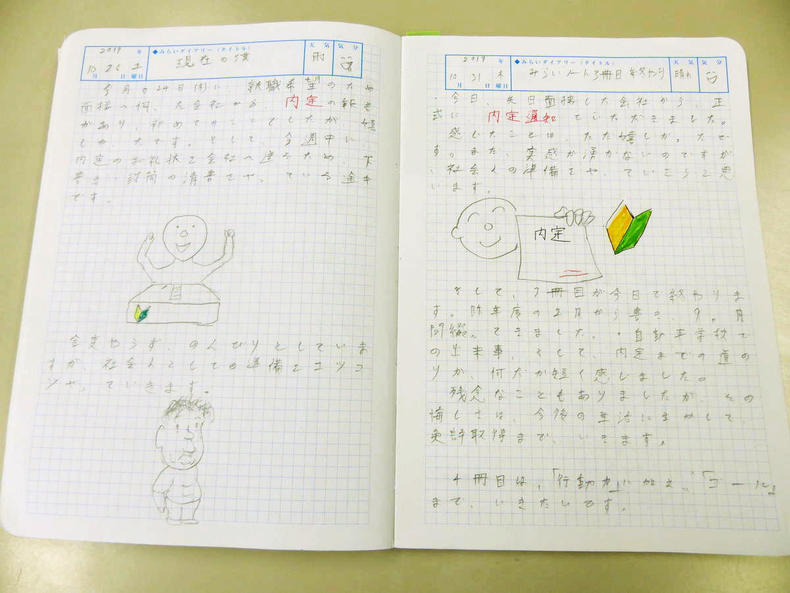 2019 年
◆みらいダイアリー(タイトル)
天気 気分
10月 26日 土曜日
現在の僕
雨
今月の24日(木)に、就職希望のため
面接へ行、た会社から、内定の報告
があり、初めてのことでしたが、嬉
しか、たです。そして、今週中に、
内定のお礼状を会社へ送るため、下
書き、封筒の清書をや、ている途中
です。
のんびりとしていま
すが、社会人としての準備をコツコ
ツや、ていきます。
2019 年
◆みらいダイアリー(タイトル)
天気 気分
10月 31日 木曜日
みらいノート3冊目 を終わり
晴れ
今日、先日面接した会社から、正
式に、内定通知をいただきました。
感じたことは、ただ嬉しか、たで
す。まだ、実感が湧かないのですが、
社会人の準備をや、ていこうと思
います。
内定
そして、3冊目が今日で終わりま
す。昨年度の2月から書き、9ヶ月
間綴、てきました。自動車学校で
の出来事、そして、内定までの道の
りが、何だか短く感じました。
残念なこともありましたが、その
悔しさは、今後の生活に生かして、
免許取得まで、いきます。
4冊目は、「行動力」に加え、「ゴール」
まで、いきたいです。